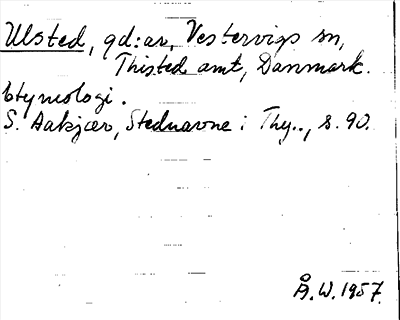 Ulsted, gd:ar, Vestervigs sn,
Thisted amt, Danmark.
Etymologi.
S. Aakjær, Stednavne i Thy.., s. 90.
Å.W. 1957.